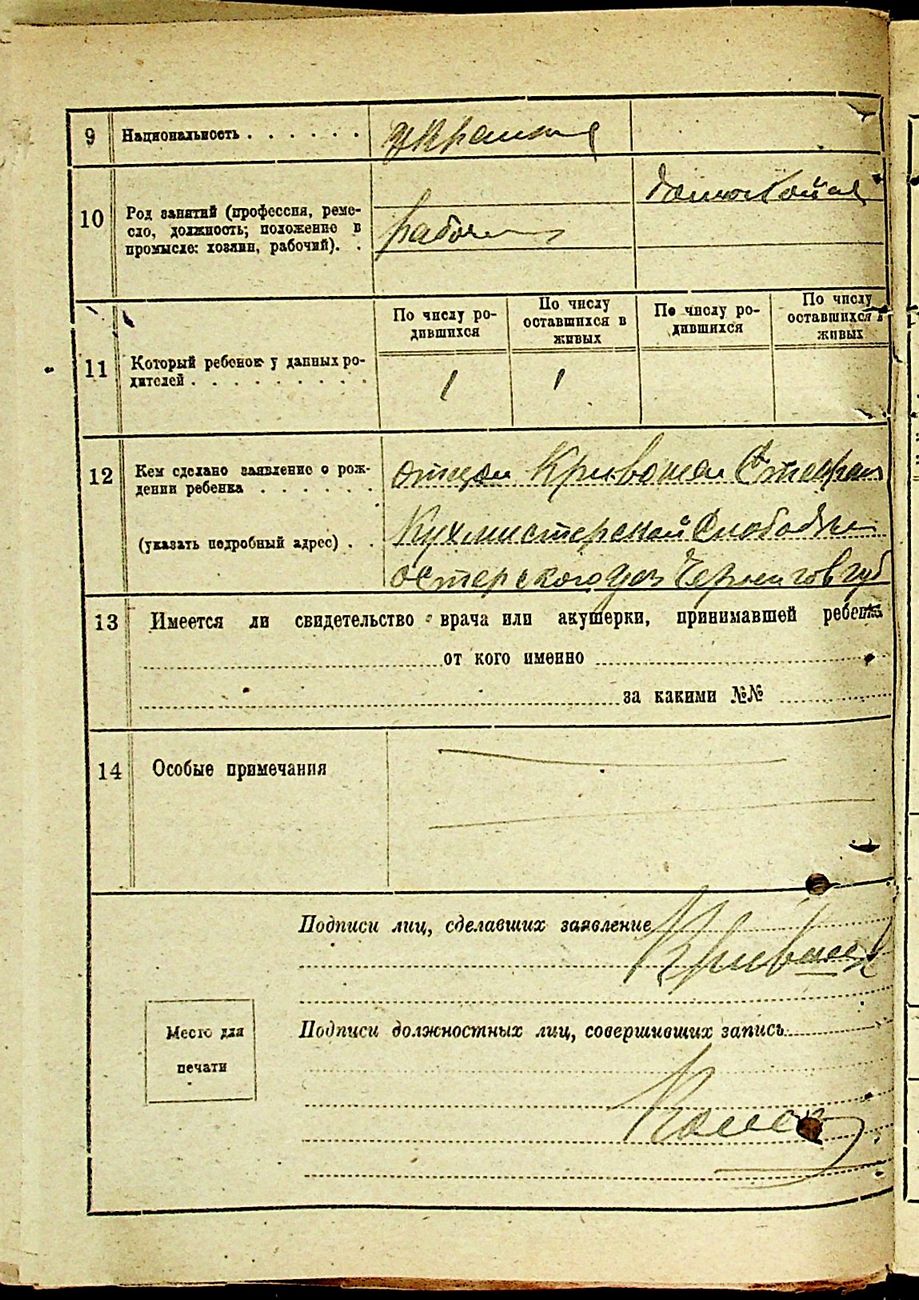 9 Национальность . . . . . . украин
10 Род занятий (профессия, реме-
сло, должность; положение в
промысле: хозяин, рабочий). .
рабоч
11 Который ребенок у данных ро-
дителей . . . . . . . . .
По числу ро-
дившихся
По числу
оставшихся в
живых
По числу ро-
дившихся
По числу
оставшихся в
живых
1 1
12 Кем сделано заявление о рож-
дении ребенка . . . . . .
(указать подробный адрес) . .
отцом Кривошеи
Кухмистерской Слободы
Остерского уез Чернигов губ
13 Имеется ли свидетельство врача или акушерки, принимавшей ребенка
от кого именно
за какими №№
14 Особые примечания
Подписи лиц, сделавших заявление
Место для
печати
Подписи должностных лиц, совершивших запись